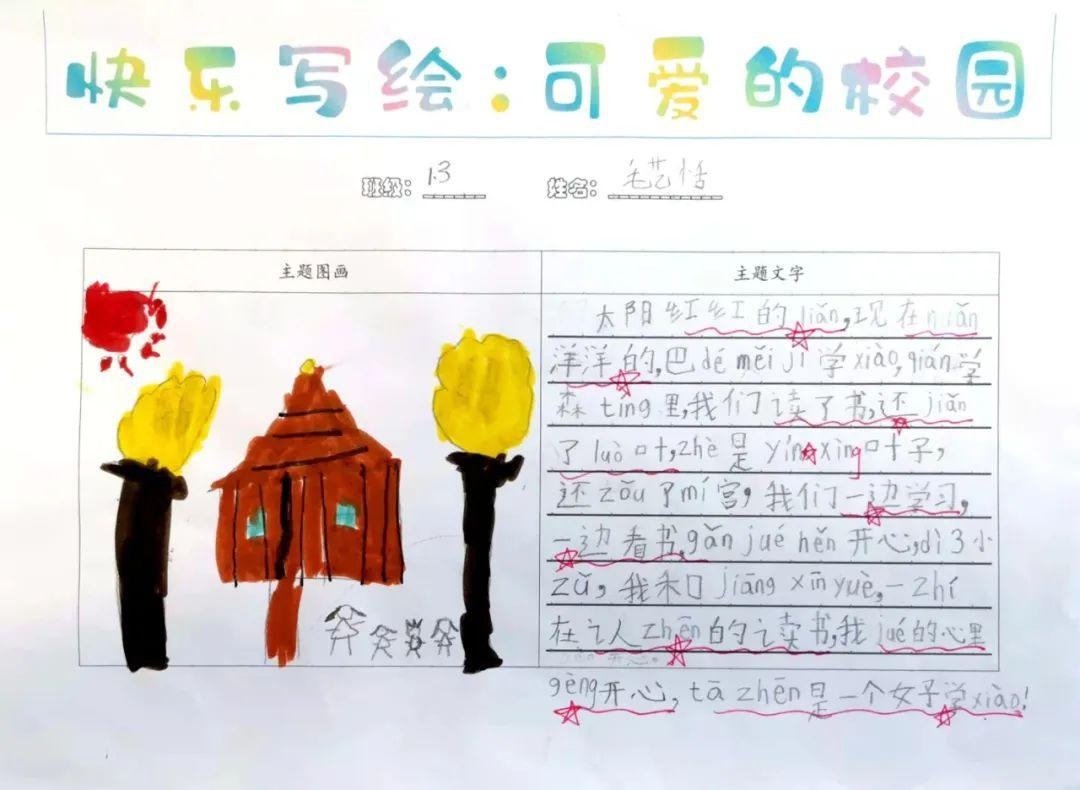 快乐写绘:可爱的校园
班级: 1.3 姓名: 毛艺恬
主题图画 主题文字
太阳红红的liǎn,现在nuǎn
洋洋的,巴dé měi jì学xiào,qián学
森tíng里,我们读了书,还jiǎn
了luò叶,zhè是yín xìng叶子,
还zǒu了mí宫,我们一边学习,
一边看书,gǎn jué hěn开心,dì 3小
zǔ,我和jiāng xīn yuè,一zhí
在认zhēn的读书,我jué的心里
gèng开心,tā zhēn是一个女子学xiào!